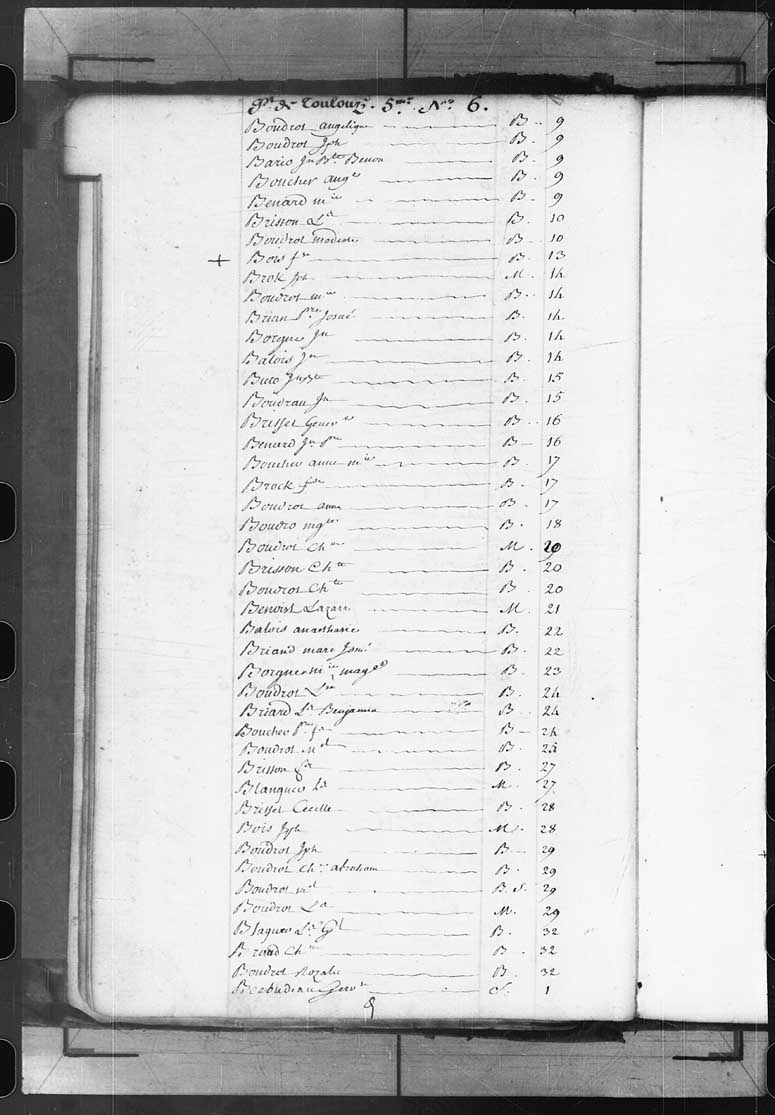 Pt de Toulouze. 5me No 6.
Boudrot angelique B. 9
Boudrot Jph B. 9
Bario Jn Bte Benon B. 9
Boucher auge B. 9
Benard mie B. 9
Brisson Ls B. 10
Boudrot modeste B 10
+ Bois fse B. 13
Brok Jph M. 14
Boudrot mie B. 14
Brian Pre Josué B. 14
Borgne Jn B. 14
Balois Jn B. 14
Buco Jn Bte B. 15
Boudrau Jn B. 15
Brisset Genev e B. 16
Benard Jn Pre B 16
Boucher anne mie B. 17
Brock fse B. 17
Boudrot anne B. 17
Boudro mgte B. 18
Boudrot Ch M. 20
Brisson Chte B. 20
Boudrot Chte B. 20
Benoist Lazare M. 21
Balois anasthasie B. 22
Briand marc Josué B. 22
Borgne mie magd B. 23
Boudrot Lse B. 24
Briard Ls Benjamin B. 24
Boucher Pre fs B 24
Boudrot ml B. 25
Brisson fs B. 27
Blanques Ls M. 27
Brisset Cecille B. 28
Bois Jph M. 28
Boudrot Jph B 29
Boudrot Chs abraham B. 29
Boudrot ml B. S. 29
Boudrot Ls M. 29
Blaques Ls Gl B. 32
Braud Ch B. 32
Boudrot Rozalie B. 32
Berbudeau Gerv S. 1